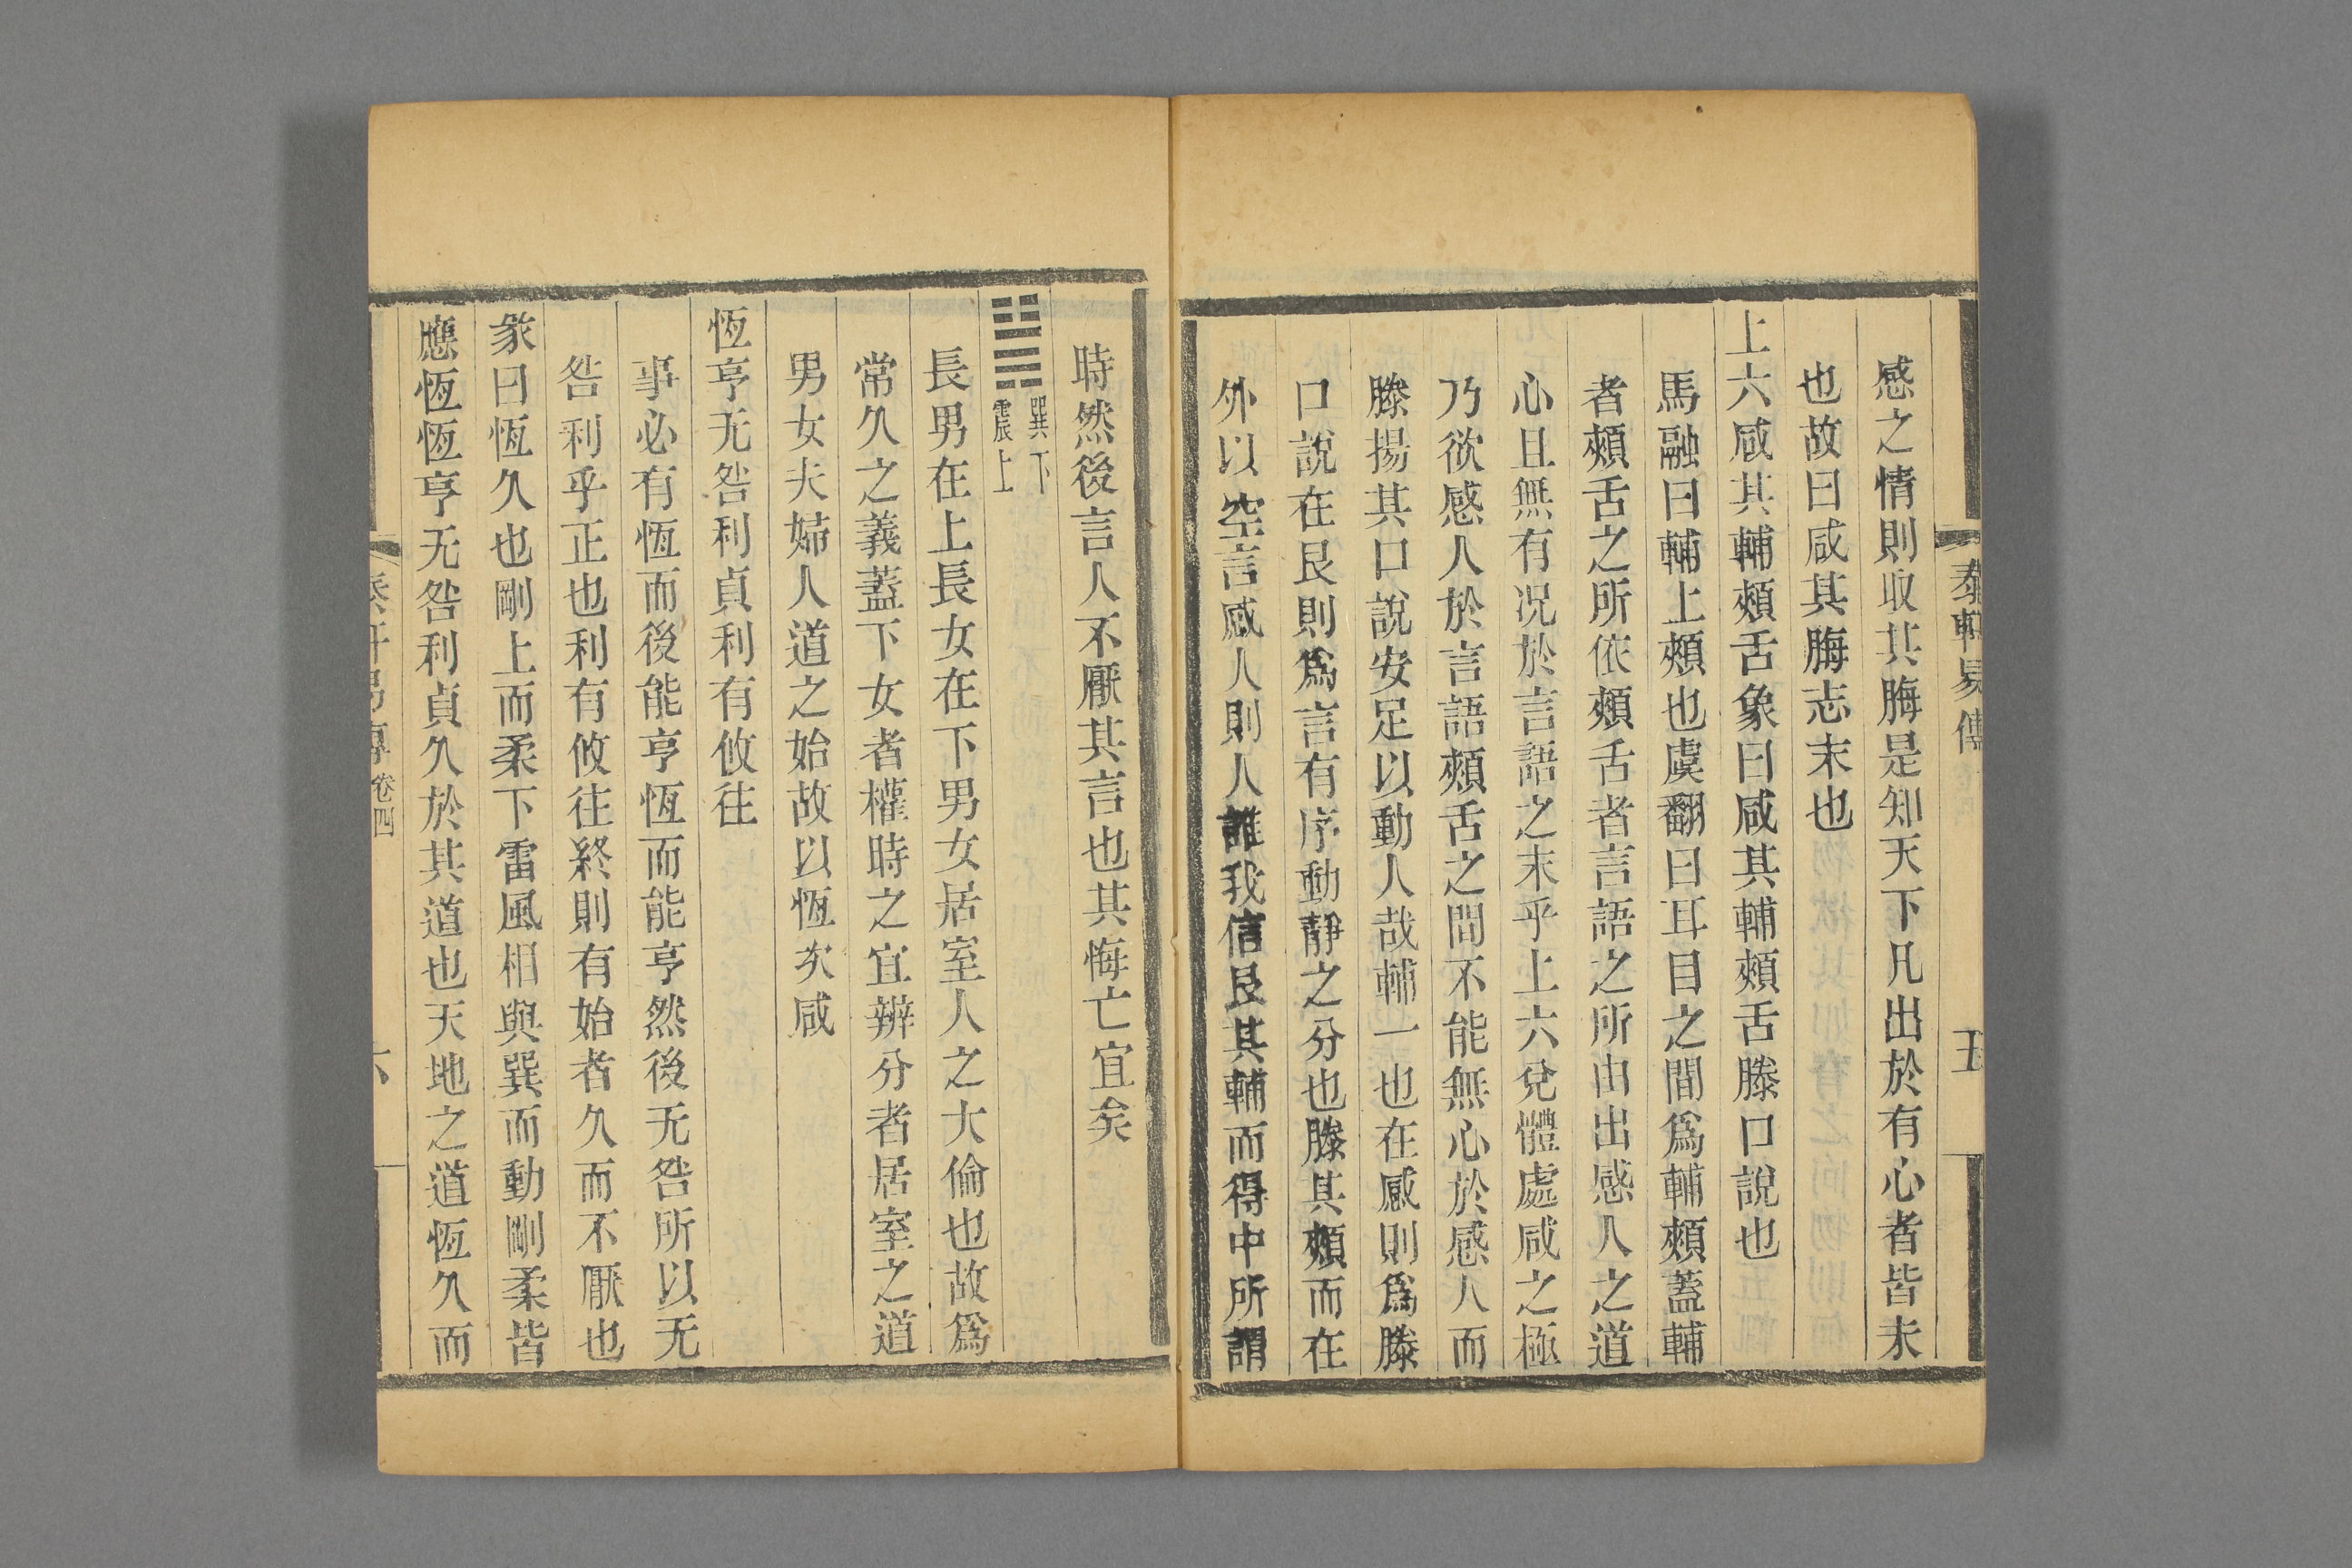 泰軒易傳
五
感之情則取其脢是知天下凡出於有心者皆未
也故曰咸其脢志末也
上六咸其輔頰舌象曰咸其輔頰舌滕口說也
馬融曰輔上頰也虞翻曰耳目之間爲輔頰蓋輔
者頰舌之所依頰舌者言語之所由出感人之道
心且無有況於言語之末乎上六兌體處咸之極
乃欲感人於言語頰舌之間不能無心於感人而
滕揚其口說安足以動人哉輔一也在感則爲滕
口說在艮則爲言有序動靜之分也滕其頰而在
外以空言感人則人誰我信艮其輔而得中所謂
時然後言人不厭其言也其悔亡宜矣
䷟巽下震上
長男在上長女在下男女居室人之大倫也故爲
常久之義蓋下女者權時之宜辨分者居室之道
男女夫婦人道之始故以恆次咸
恆亨无咎利貞利有攸往
事必有恆而後能亨恆而能亨然後无咎所以无
咎利乎正也利有攸往終則有始者久而不厭也
彖曰恆久也剛上而柔下雷風相與巽而動剛柔皆
應恆恆亨无咎利貞久於其道也天地之道恆久而
泰軒易傳 卷四
六